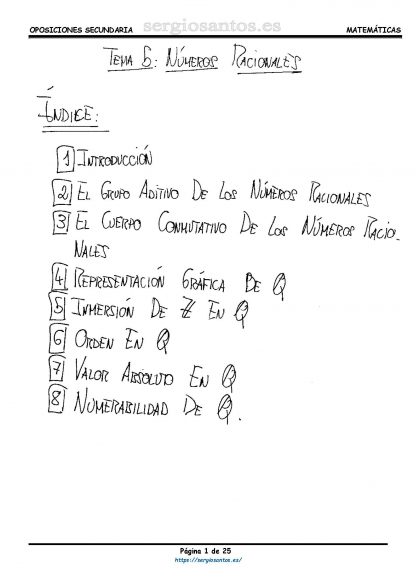 sergiosantos.es
OPOSICIONES SECUNDARIA MATEMÁTICAS
TEMA 6: NÚMEROS RACIONALES
ÍNDICE:
1 INTRODUCCIÓN
2 EL GRUPO ADITIVO DE LOS NÚMEROS RACIONALES
3 EL CUERPO CONMUTATIVO DE LOS NÚMEROS RACIO-
NALES
4 REPRESENTACIÓN GRÁFICA DE Q
5 INMERSIÓN DE Z EN Q
6 ORDEN EN Q
7 VALOR ABSOLUTO EN Q
8 NUMERABILIDAD DE Q.
Página 1 de 25
https://sergiosantos.es/